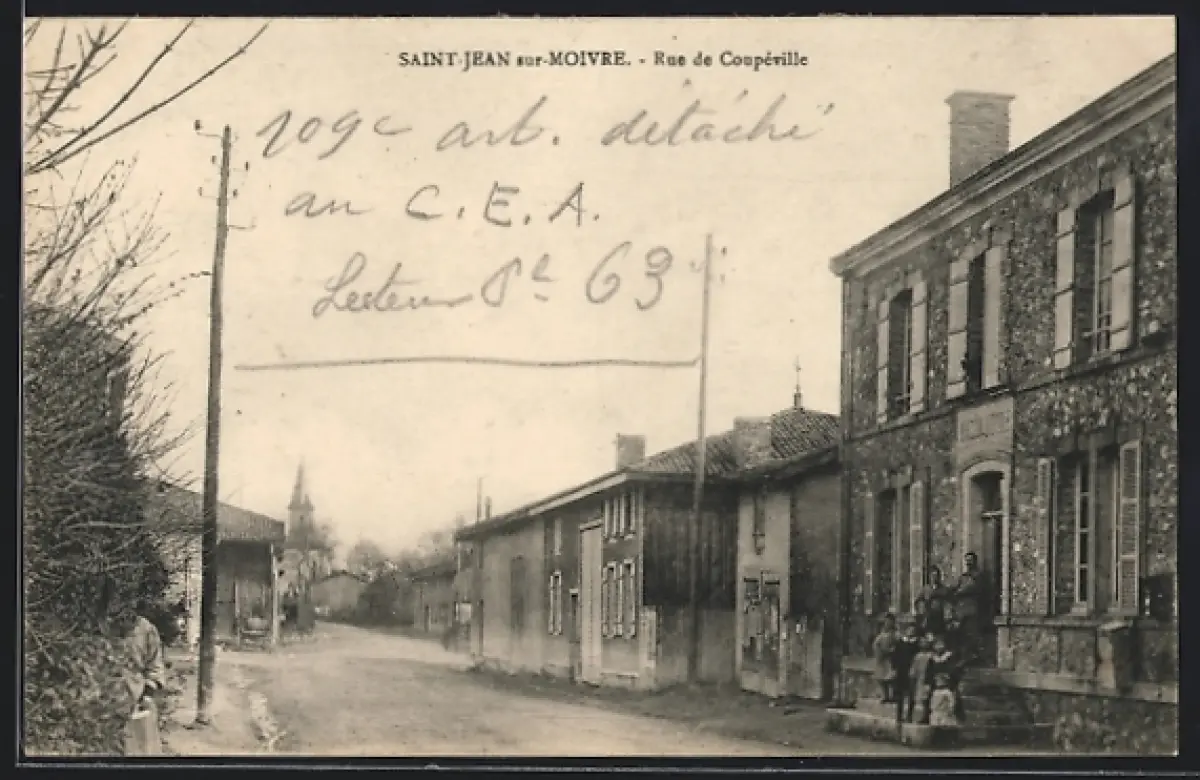 SAINT-JEAN sur-MOIVRE. - Rue de Coupéville
109e art. détaché
au C.E.A.
Secteur Pal 63